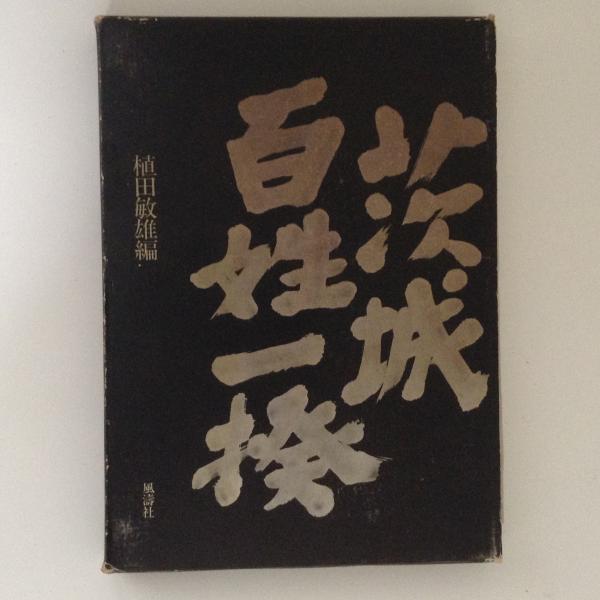 茨城
百姓一揆
植田敏雄編
風濤社